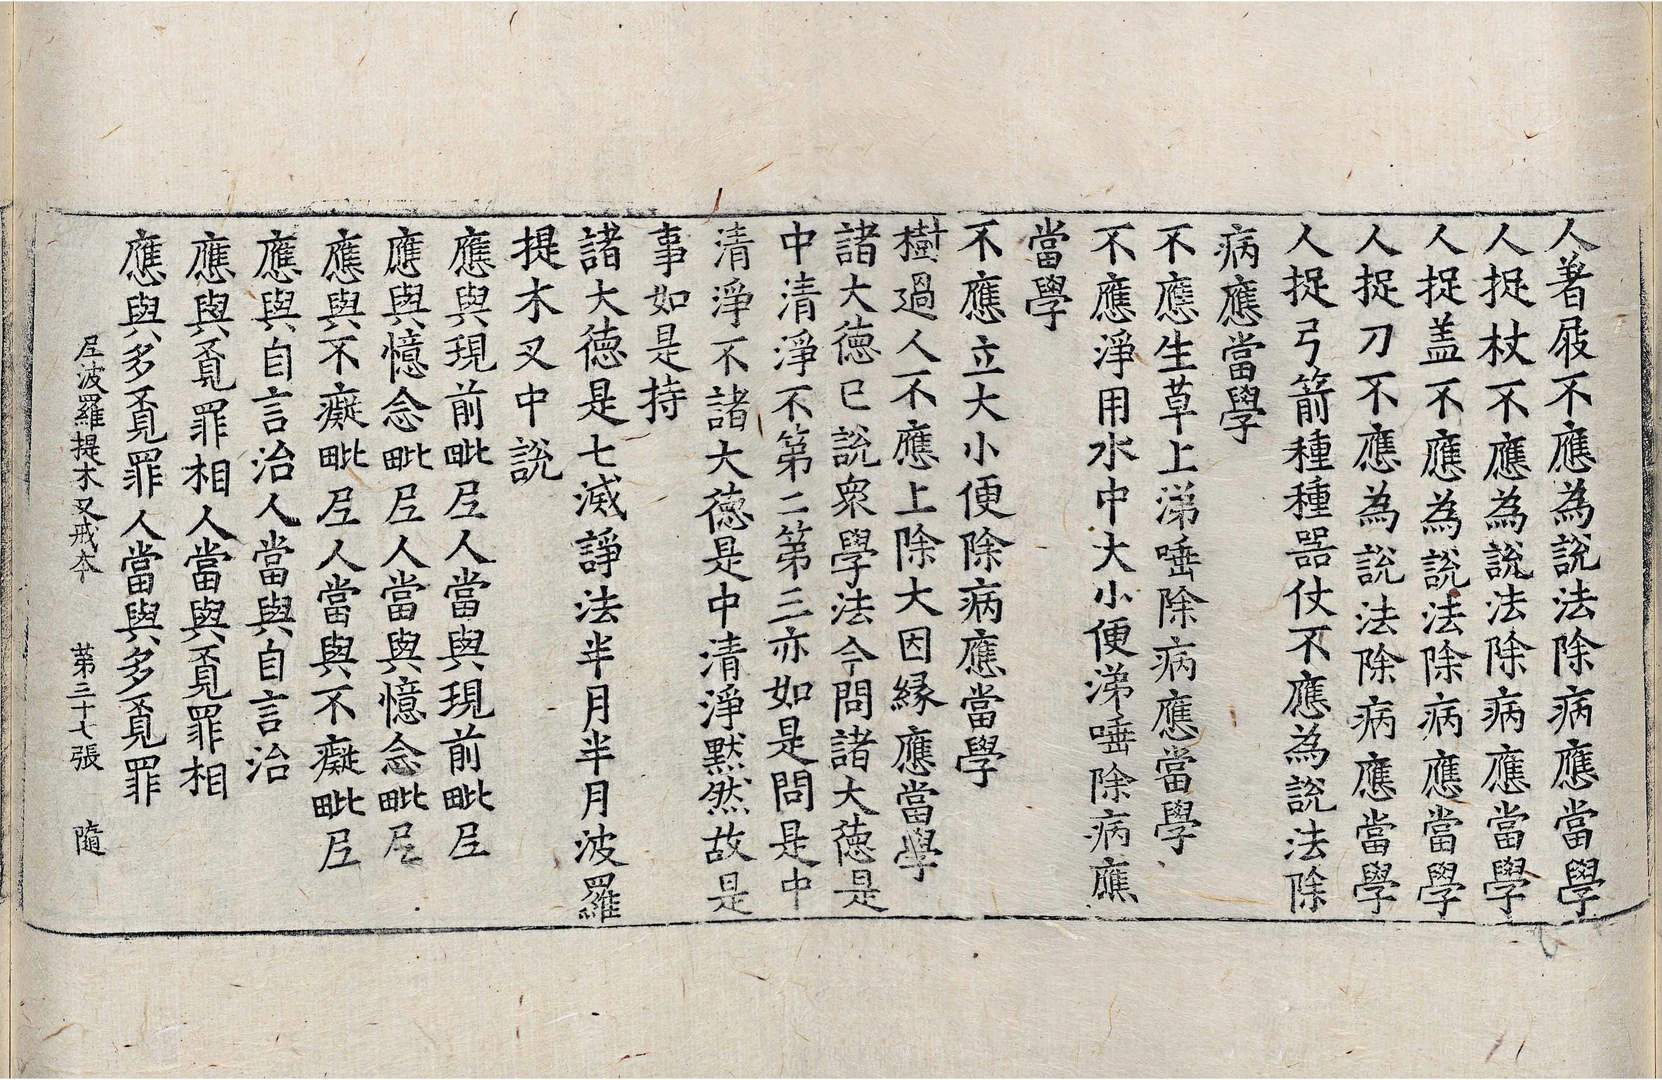 人著屐不應為說法除病應當學
人捉杖不應為說法除病應當學
人捉盖不應為說法除病應當學
人捉刀不應為說法除病應當學
人捉弓箭種種器仗不應為說法除
病應當學
不應生草上涕唾除病應當學
不應淨用水中大小便涕唾除病應
當學
不應立大小便除病應當學
樹過人不應上除大因緣應當學
諸大德已說衆學法今問諸大德是
中清淨不第二第三亦如是問是中
清淨不諸大德是中清淨默然故是
事如是持
諸大德是七滅諍法半月半月波羅
提木叉中說
應與現前毗尼人當與現前毗尼
應與憶念毗尼人當與憶念毗尼
應與不癡毗尼人當與不癡毗尼
應與自言治人當與自言治
應與覓罪相人當與覓罪相
應與多覓罪人當與多覓罪
尼波羅提木叉戒本 第三十七張 隨